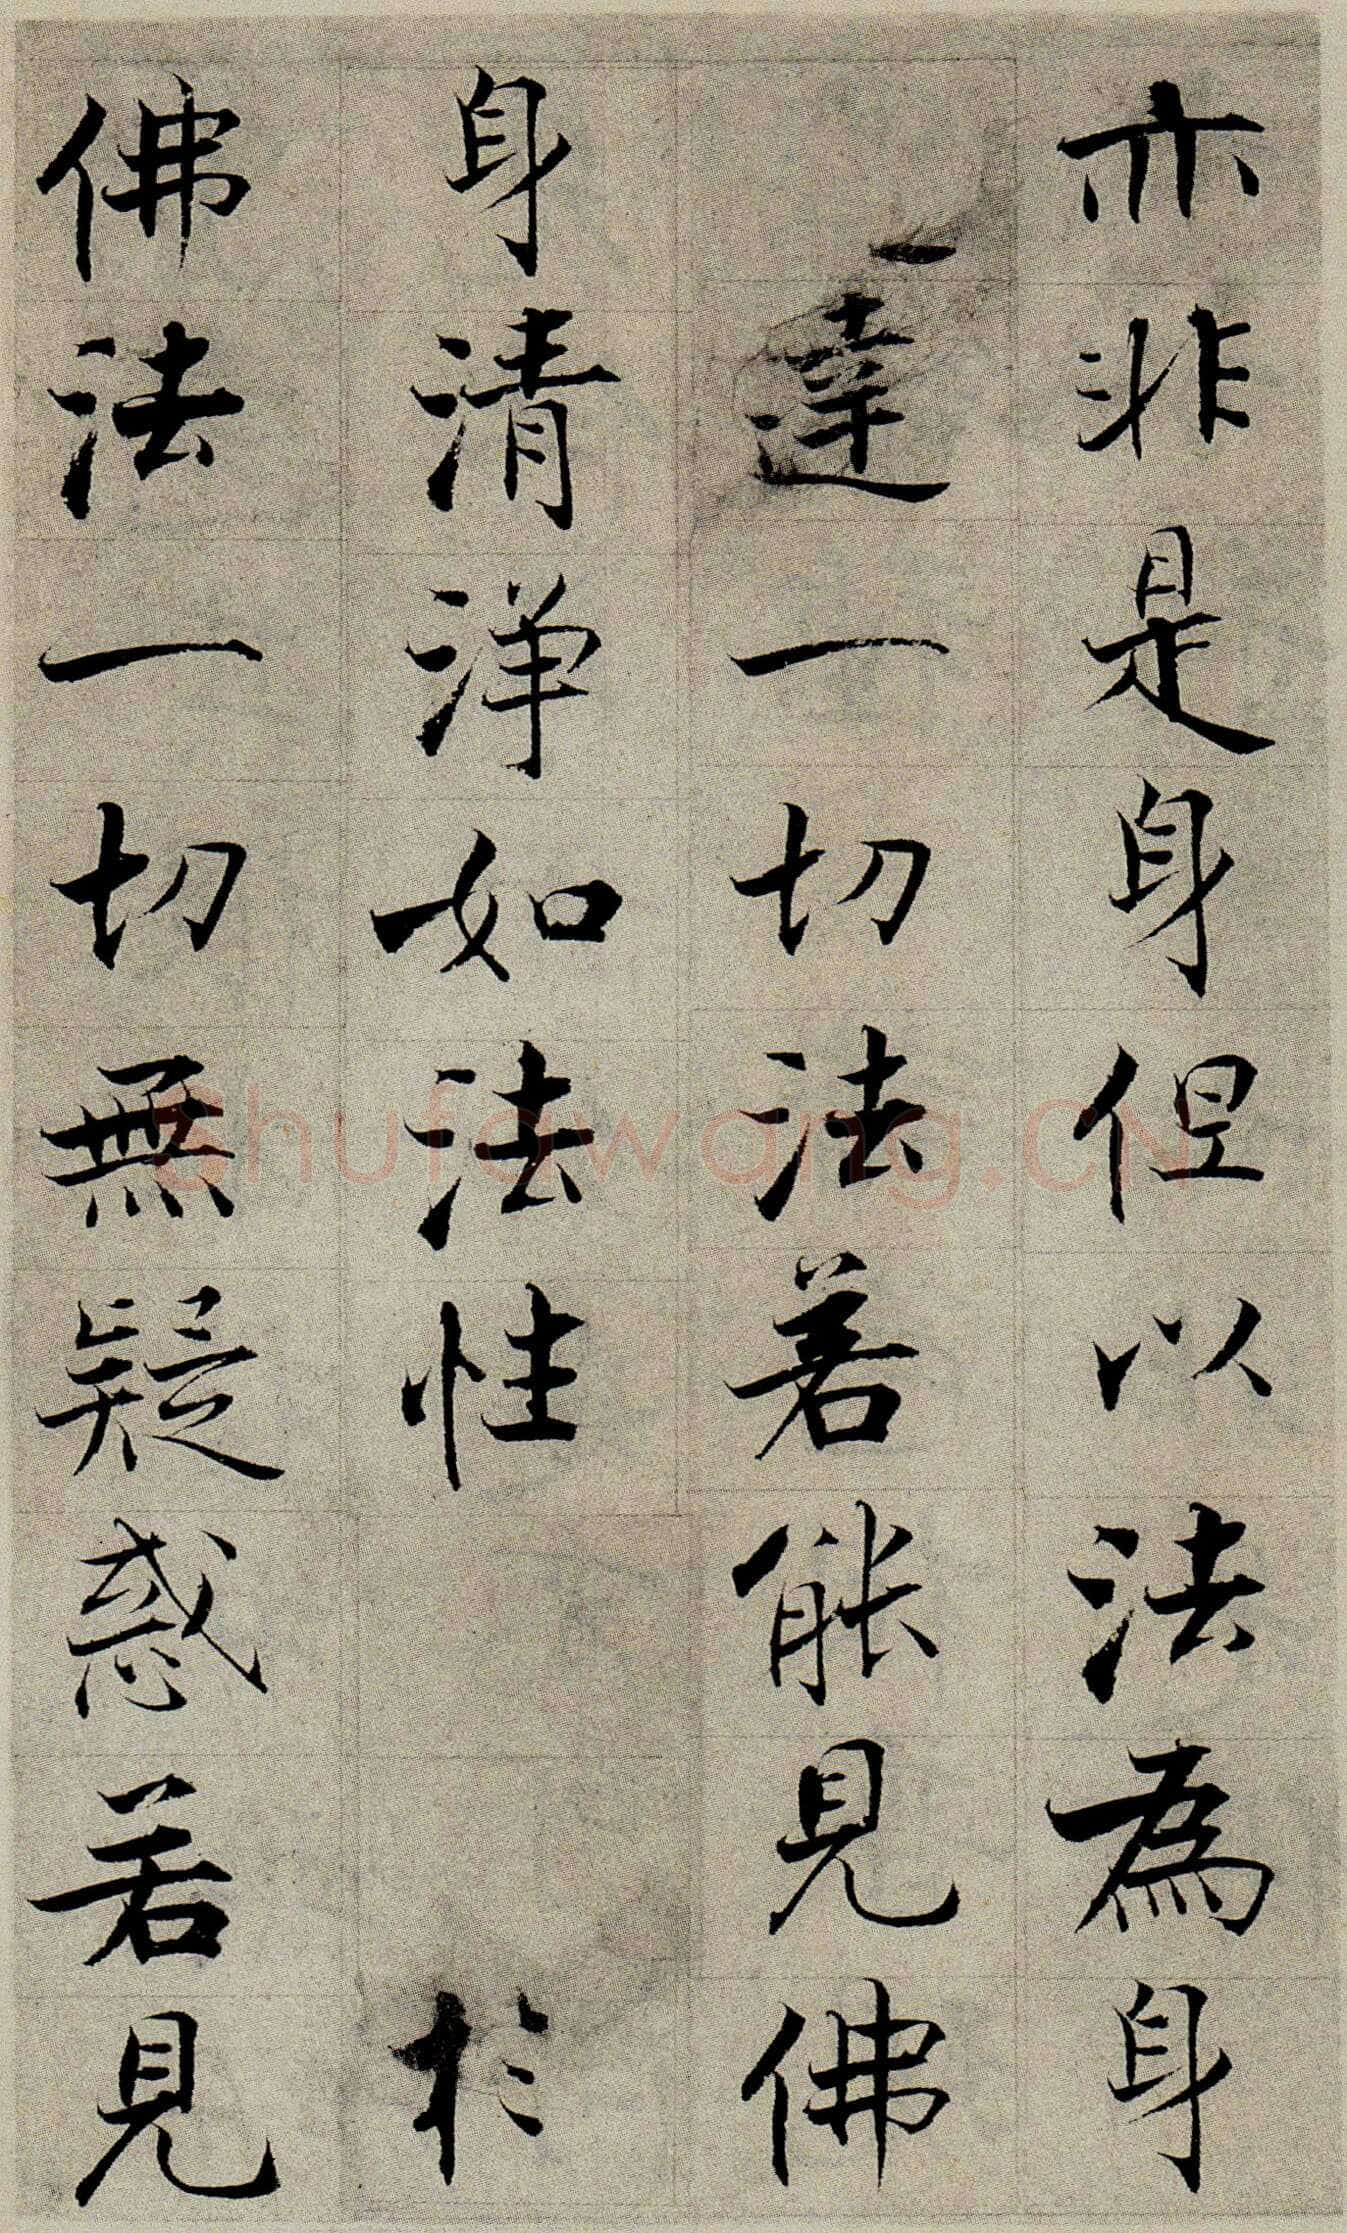 亦非是身但以法為身
達一切法若能見佛
身清淨如法性於
佛法一切無疑惑若見
Shufawang.CN